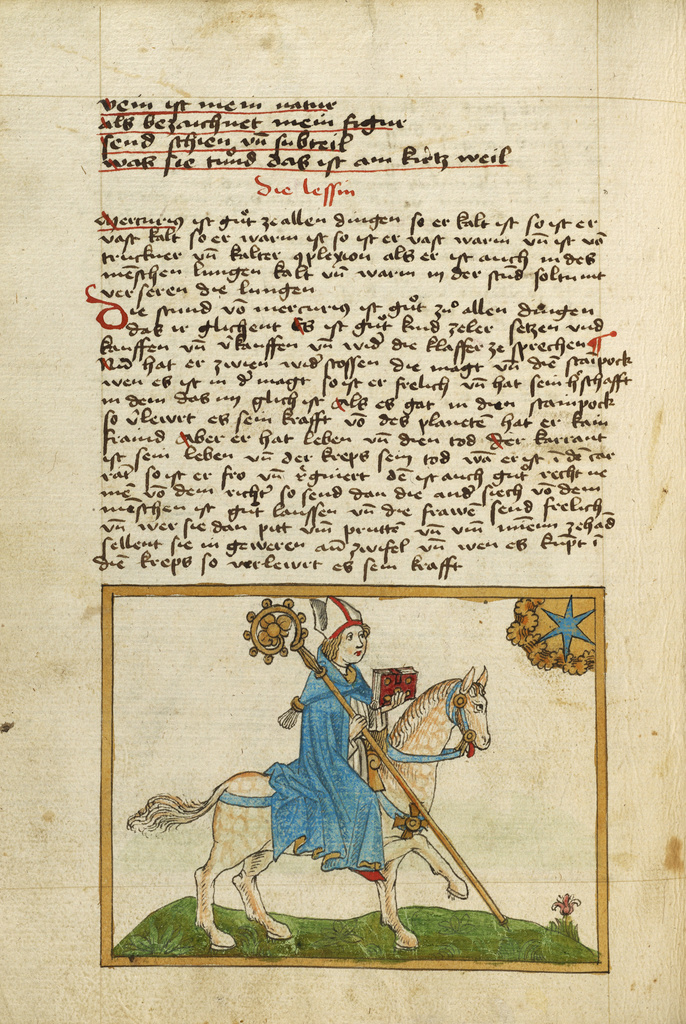 vein ist mein natur
als bezaichnet mein figur
send schien vn̄ subteil
was sie tůnd das ist am kürtz weil
Die lessin
Mercurius ist gůt ze allen dingen so er kalt ist so ist er
vast kalt so er warm ist so ist er vast warm vn̄ ist vō
truckner vn̄ kalter 9plexion als er ist auch in des
mēschen lungen kalt vn̄ warm in der stund soltu nit
verseren die lungen
Die stund vō mercurius ist gůt zů allen dingen
das ir glichent Es ist gůt kind zeler setzen vnd
kauffen vn̄ v̄kauffen vn̄ wid die klaffer ze sprechen
Nun hat er zwien wid stossen die magt vn̄ dien stainpock
wen es ist in d magt so ist er frelich vn̄ hat sein h'schafft
in dem das im glich ist Als es gat in dien stainpock
so v̄lewrt es sein krafft vō des planetē hat er kain
fraind Aber er hat leben vn̄ dien tod Der karrant
ist sein leben vn̄ der kreps sein tod wā er ist ī dē car
so ist er fro vn̄ dē ist auch gůt recht ne
mē vō dem richt' so send dan die and siech vō dem
mēschen ist gůt laussen vn̄ die frawē send frelich
vn̄ wer sie dan pitt vm vn̄ vm
sellent sie in geweren an zwifel vn̄ wen es kūpt ī
diē kreps so verlewrt es sein krafft